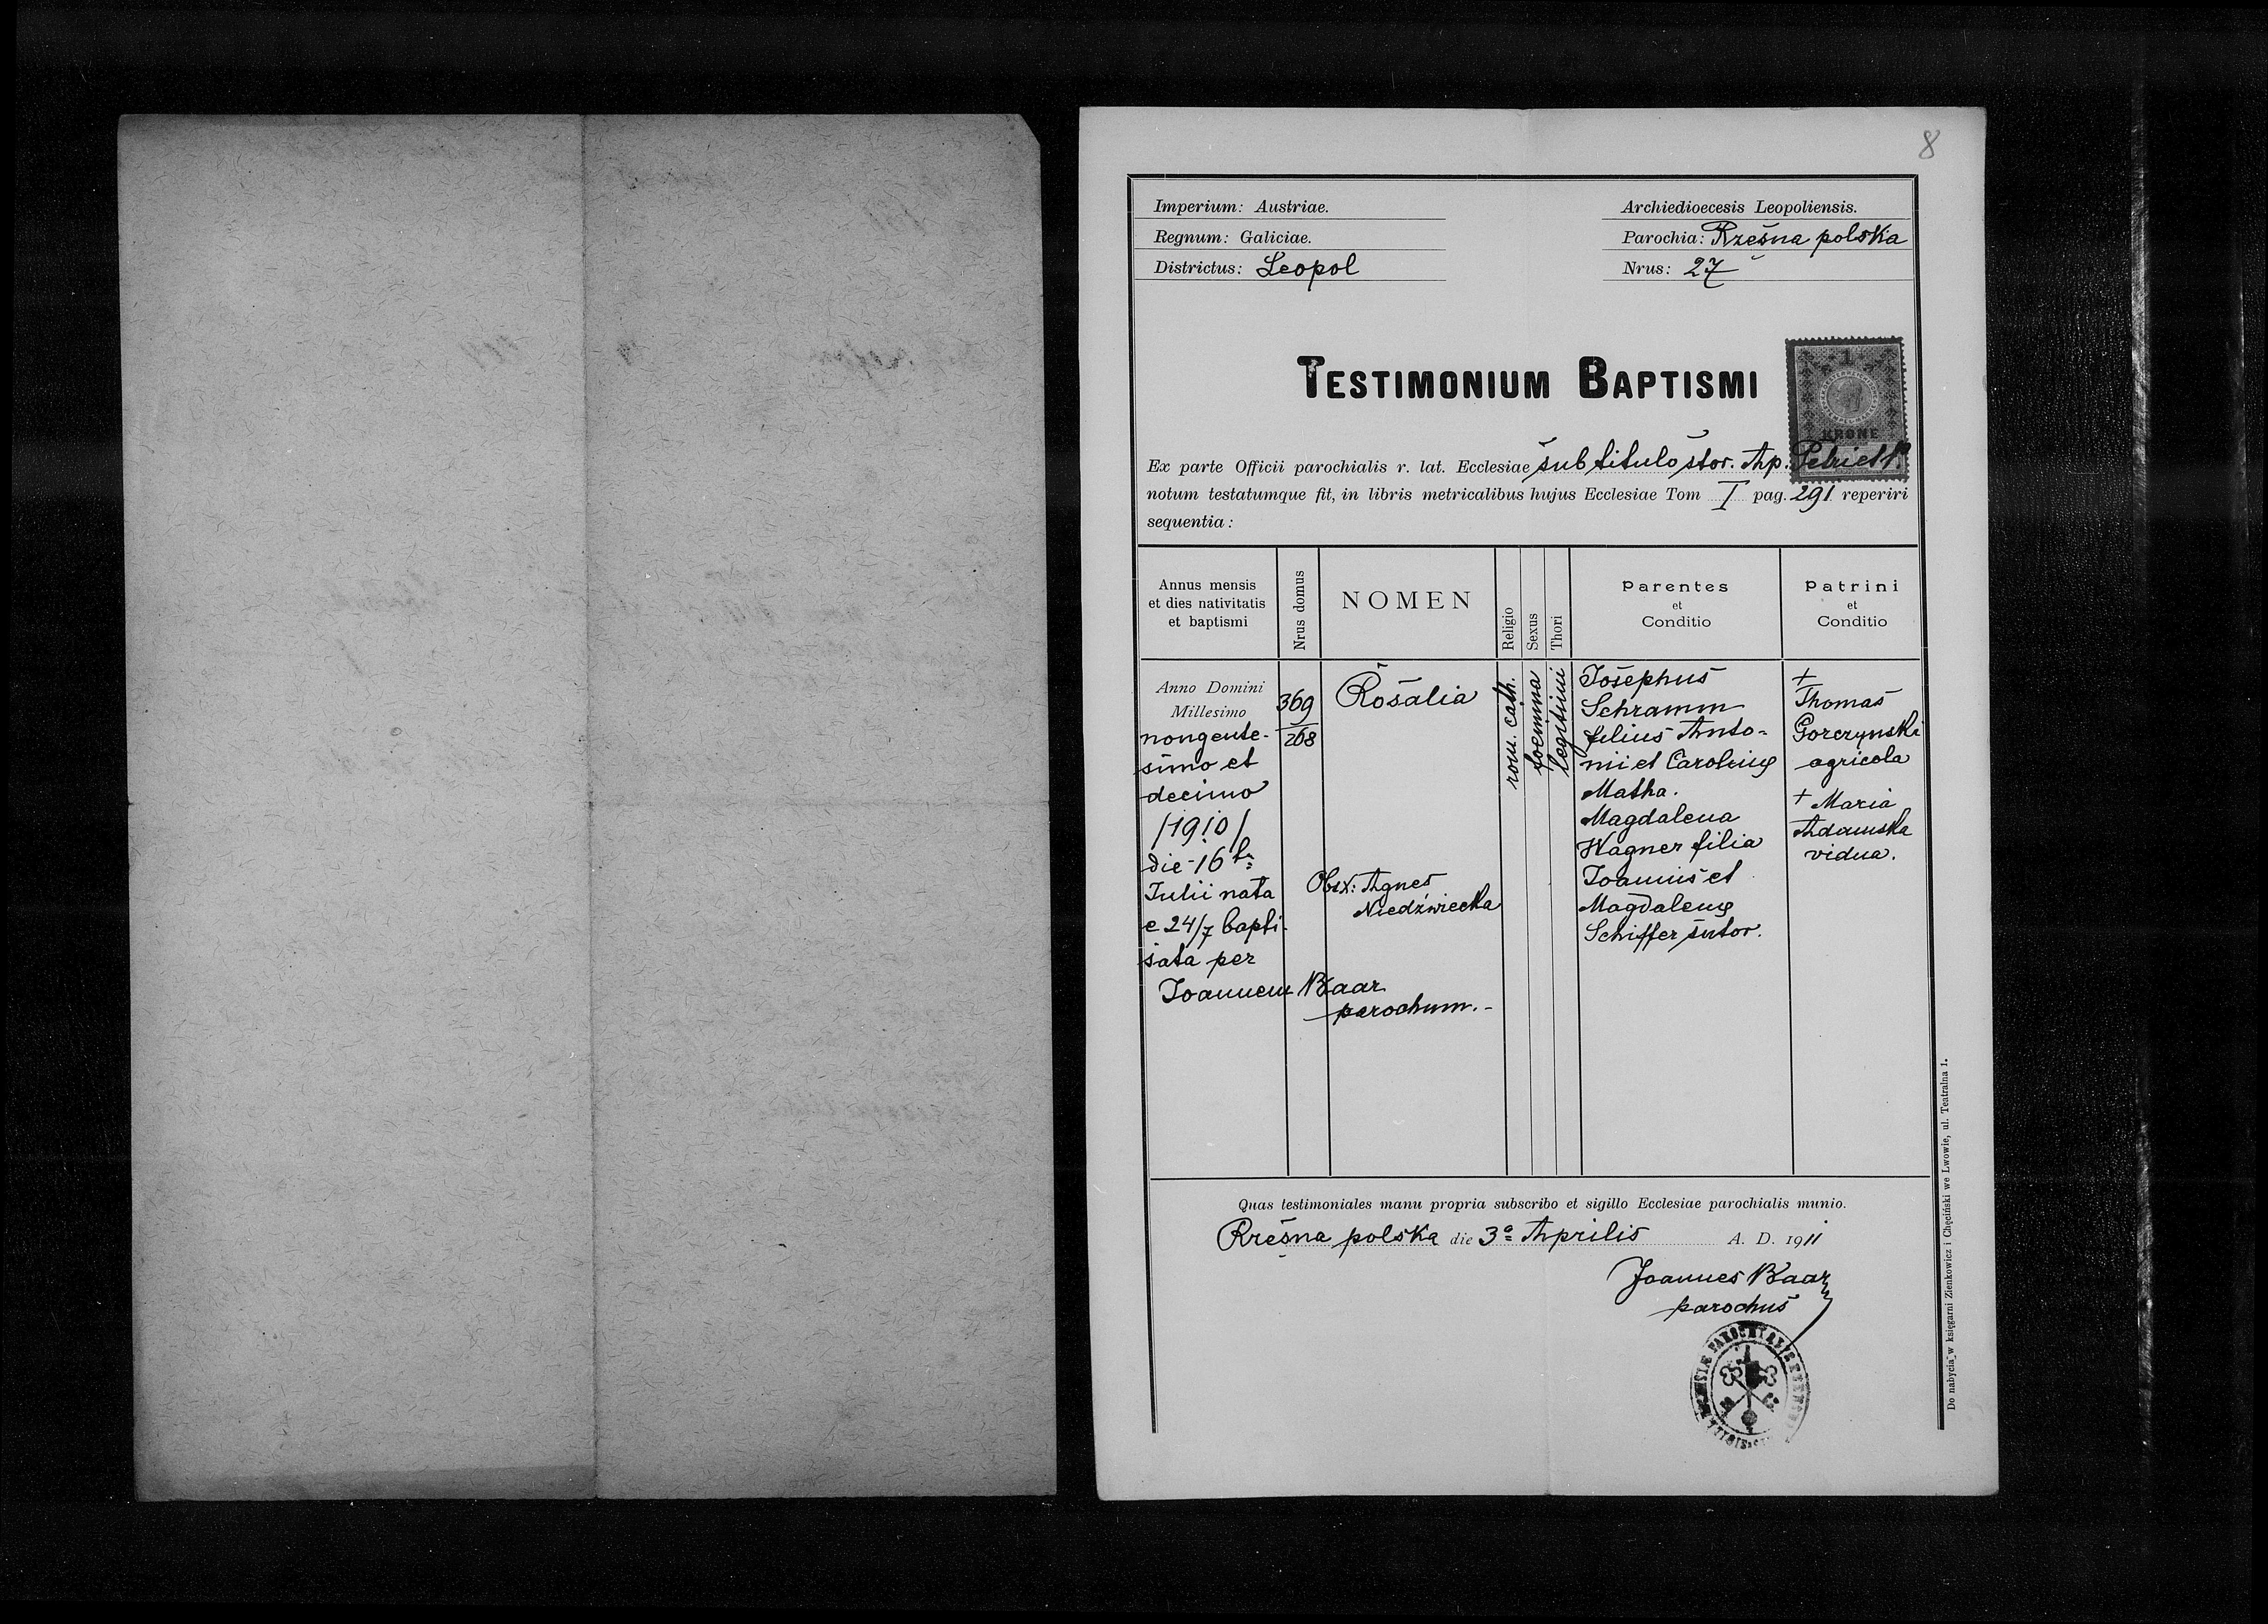 8
Imperium: Austriae.
Archiedioecesis Leopoliensis.
Regnum: Galiciae.
Parochia: Rzęsna polska
Districtus: Leopol
Nrus: 27
TESTIMONIUM BAPTISMI
1
KRONE
Ex parte Officii parochialis r. lat. Ecclesiae sub titulo stor. Ap. Petri et P.
notum testatumque fit, in libris metricalibus hujus Ecclesiae Tom I pag. 291 reperiri
sequentia:
Annus mensis
et dies nativitatis
et baptismi
Nrus domus
NOMEN
Religio
Sexus
Thori
Parentes
et
Conditio
Patrini
et
Conditio
Anno Domini
Millesimo
nongente-
simo et
decimo
/1910/
die 16
Iulii nata
e 24/7 bapti-
sata per
Joannem Baar
parochum.-
369
268
Rosalia
Obsx: Agnes
Niedźwiecka
rom. cath.
foeminina
legitimi
Josephus
Schramm
filius Anto-
nii et Carolinę
Matha.
Magdalena
Wagner filia
Joannis et
Magdalenę
Schiffer sutor.
+
Thomas
Gorczynski
agricola
+ Maria
Adamska
vidua.
Quas testimoniales manu propria subscribo et sigillo Ecclesiae parochialis munio.
Rzęsna polska die 3a Aprilis A. D. 1911
Joannes Baar
parochus
Do nabycia w księgarni Zienkowicz i Chęciński we Lwowie, ul. Teatralna 1.